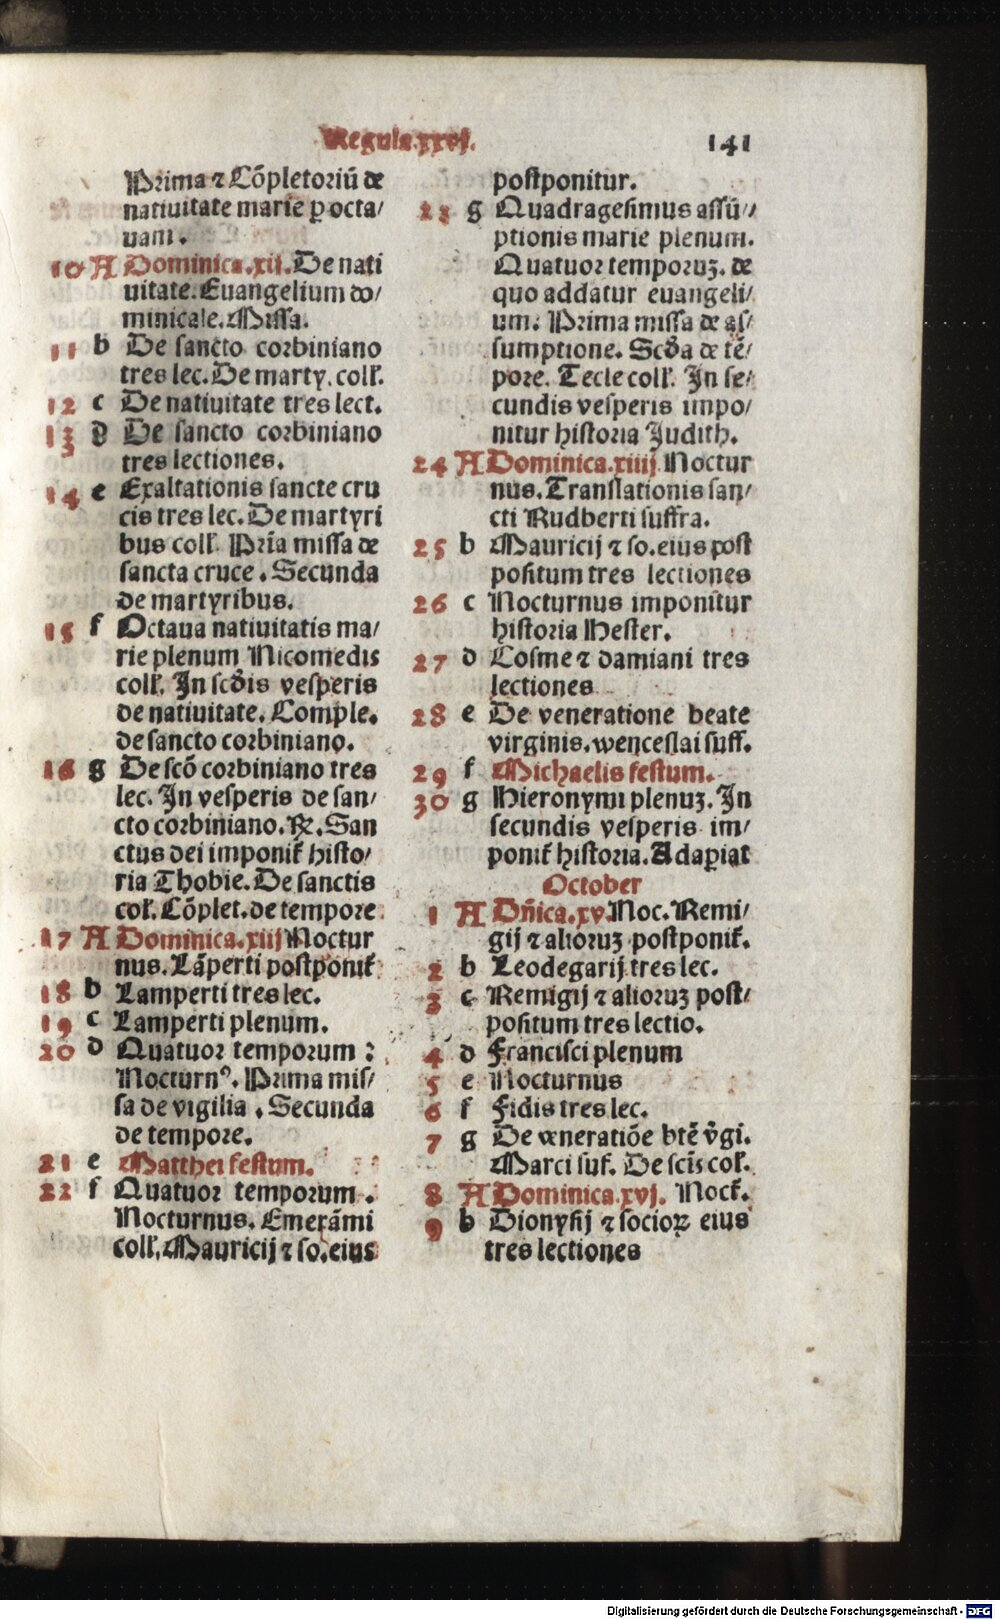 Regula.xxvj.
141
Prima ⁊ Cõpletoriũ de
natiuitate marie ꝑ octa/
uam.
10 A Dominica.xij. De nati
uitate. Euangelium do/
minicale. Missa.
11 b De sancto corbiniano
tres lec. De marty. coll̃.
12 c De natiuitate tres lect.
13 d De sancto corbiniano
tres lectiones.
14 e Exaltationis sancte cru
cis tres lec. De martyri
bus coll̃. Prĩa missa de
sancta cruce. Secunda
de martyribus.
15 f Octaua natiuitatis ma/
rie plenum Nicomedis
coll̃. In scd̃is vesperis
de natiuitate. Comple.
de sancto corbiniano.
16 g De scõ corbiniano tres
lec. In vesperis de san/
cto corbiniano. ℟. San
ctus dei imponit̃ histo/
ria Thobie. De sanctis
col̃. Cõplet. de tempore
17 A Dominica.xiij Noctur
nus. Lãperti postponit̃
18 b Lamperti tres lec.
19 c Lamperti plenum.
20 d Quatuor temporum :
Nocturnꝰ. Prima mis/
sa de vigilia. Secunda
de tempore.
21 e Matthei festum.
22 f Quatuor temporum.
Nocturnus. Emerãmi
coll̃. Mauricij ⁊ so. eius
postponitur.
23 g Quadragesimus assũ//
ptionis marie plenum.
Quatuor temporuꝫ. de
quo addatur euangeli/
um. Prima missa de as/
sumptione. Scd̃a de tẽ/
pore. Tecle coll̃. In se/
cundis vesperis impo/
nitur historia Judith.
24 A Dominica.xiiij Noctur
nus. Translationis san/
cti Rudberti suffra.
25 b Mauricij ⁊ so. eius post
positum tres lectiones
26 c Nocturnus imponitur
historia Hester.
27 d Cosme ⁊ damiani tres
lectiones
28 e De veneratione beate
virginis. wenceslai suff.
29 f Michaelis festum.
30 g Hieronymi plenuꝫ. In
secundis vesperis im/
ponit̃ historia. Adaꝑiat
October
1 A Dñica.xv. Noc. Remi/
gij ⁊ alioruꝫ postponit̃.
2 b Leodegarij tres lec.
3 c Remigij ⁊ alioruꝫ post/
positum tres lectio.
4 d Francisci plenum
5 e Nocturnus
6 f Fidis tres lec.
7 g De veneratiõe btẽ ṽgi.
Marci suf. De scĩs col̃.
8 A Dominica.xvj. Noct̃.
9 b Dionysij ⁊ socioꝝ eius
tres lectiones
Digitalisierung gefördert durch die Deutsche Forschungsgemeinschaft - DFG